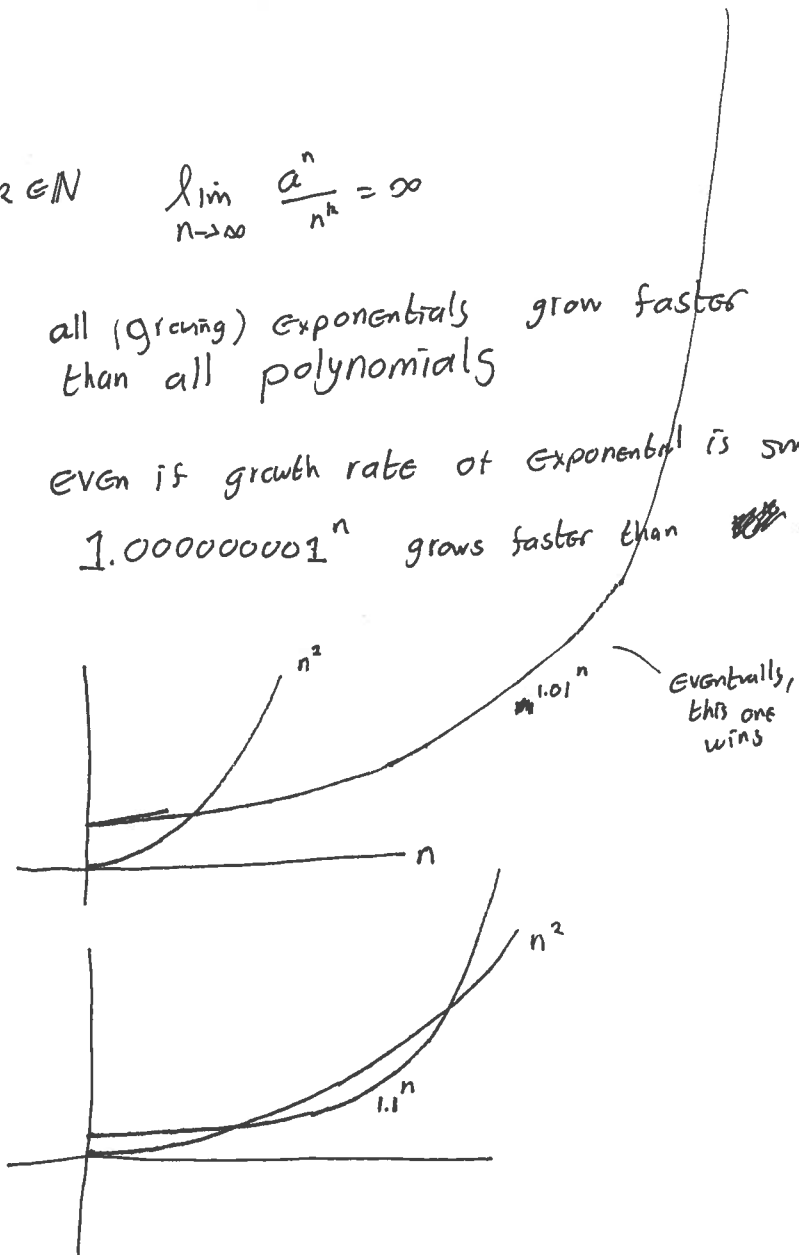 ∈ ℕ lim n→∞ a^n / n^k = ∞
all (growing) exponentials grow faster
than all polynomials
even if growth rate of exponential is
1.000000001^n grows faster than
n^2
1.01^n
eventually,
this one
wins
n
n^2
1.1^n